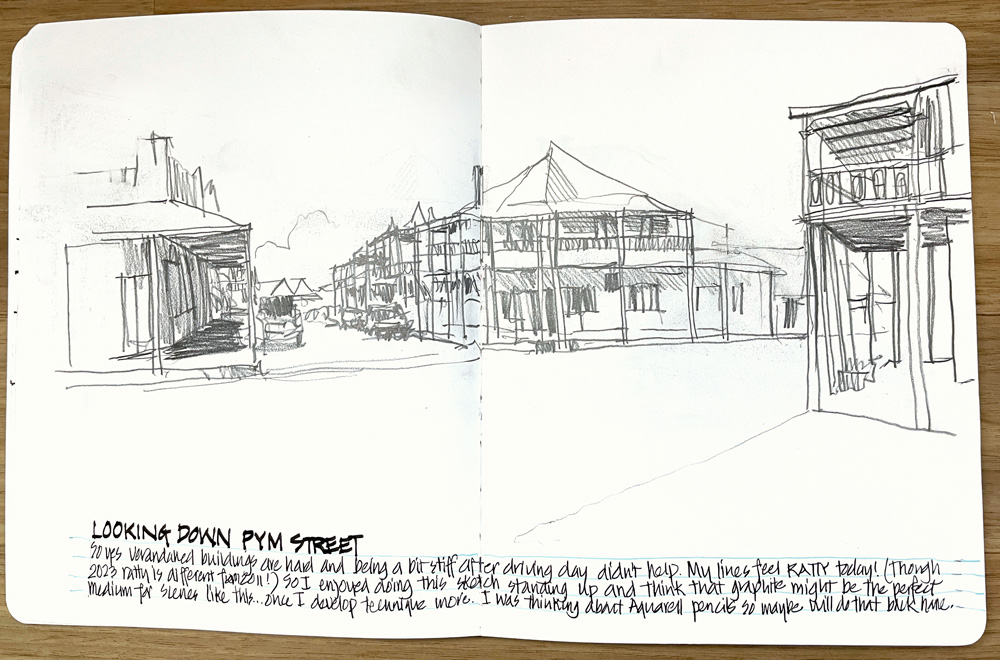 LOOKING DOWN PYM STREET
So yes verandahed buildings are hard and being a bit stiff after driving day didn't help. My lines feel RATTY today! (Though
2023 ratty is different from 2011!) So I enjoyed doing this sketch standing up and think that graphite might be the perfect
medium for scenes like this... once I develop technique more. I was thinking about Aquarell pencils so maybe will do that back home.